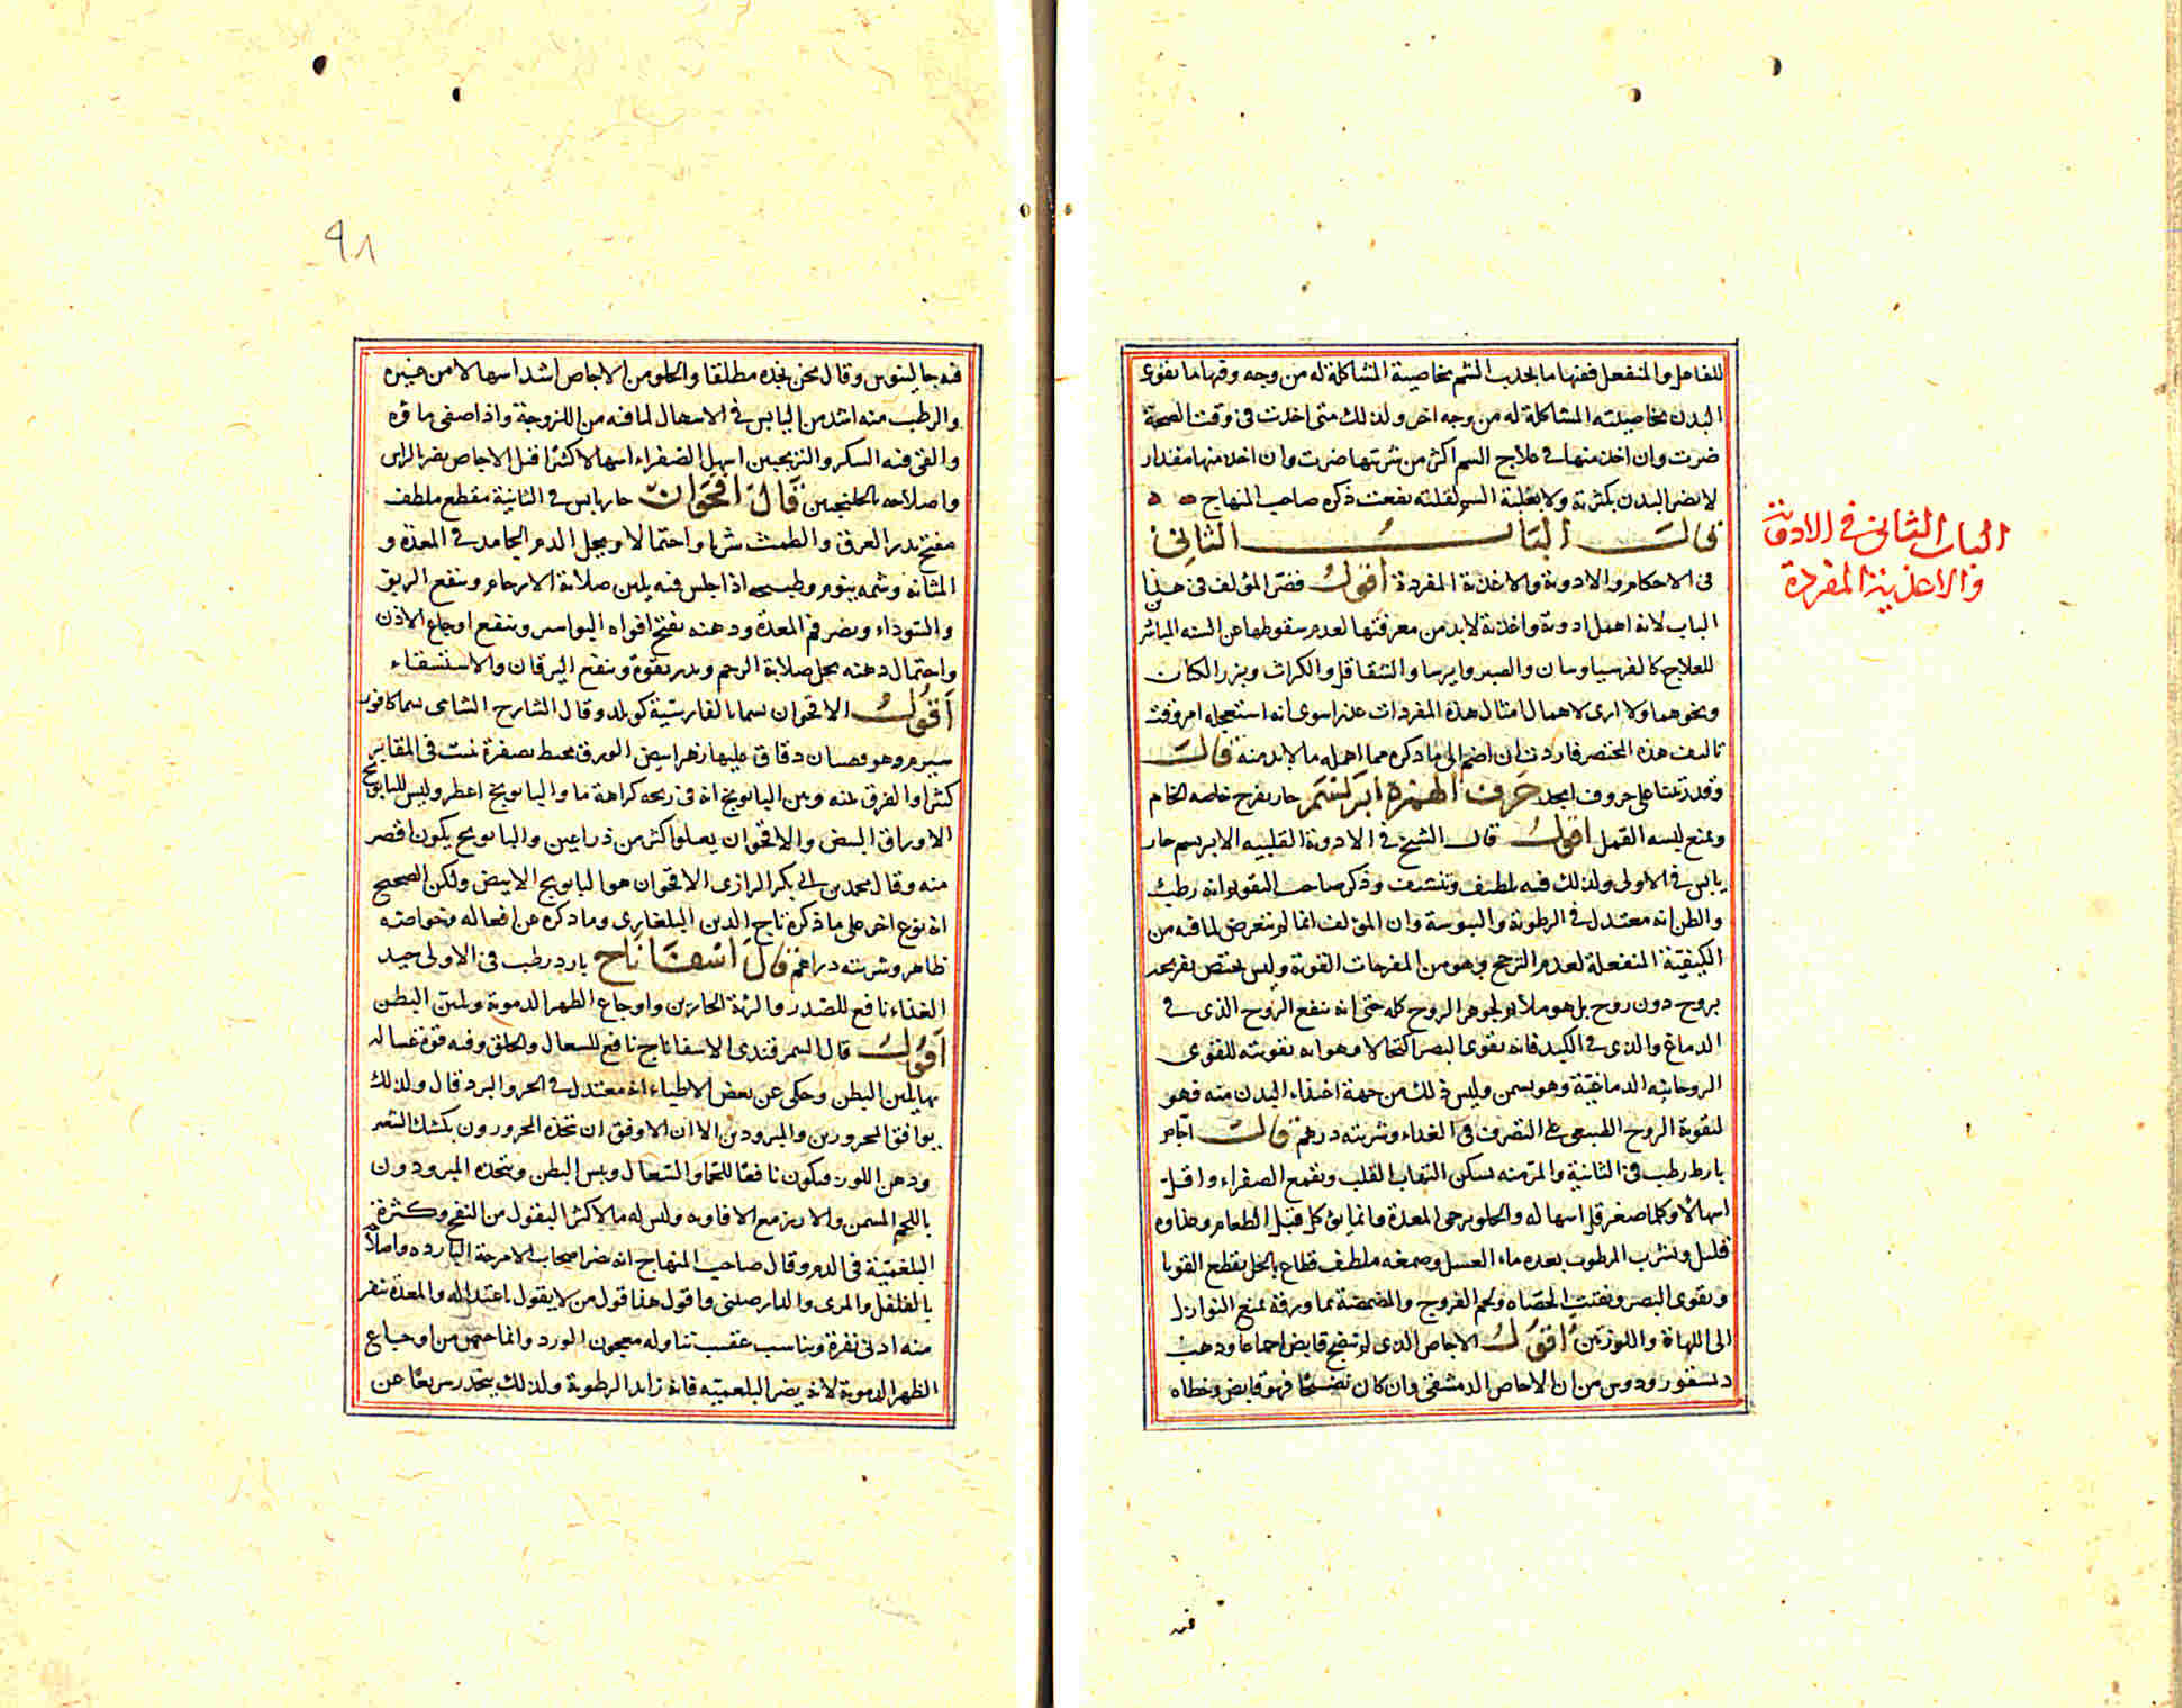 للفاعل والمنفعل فمنها ما يجذب السم بخاصية المشاكلة له من وجه ومنها ما يقوى
البدن بخاصيته المشاكلة له من وجه اخر ولذلك متى اخذت فى وقت الصحة
ضرت وان اخذ منها فى علاج السم اكثر من شربتها ضرت وان اخذ منها مقدار
لا يضر البدن بكثرته ولا يغلبه السم لقلته نفعت ذكره صاحب المنهاج
قال الباب الثانى
فى الاحكام والادوية والاغذية المفردة اقول قصر المؤلف فى هذا
الباب لانه اهمل ادوية واغذية لابد من معرفتها لعدم سقوطها عن السنة المباشر
للعلاج كالفرسياوسان والصبر وايرسا والشقاقل والكراث وبزر الكتان
ونحوهما ولا ارى لاهمال امثال هذه المفردات عذرا سوى انه استعجله امر وقت
تاليف هذه المختصر فاردت ان اضم الى ما ذكره مما اهمله ما لابد منه قال
وقد رتبتنا على حروف ابجد حرف الهمزة ابريسم حار يفرح خاصه الخام
ويمنع لبسه القمل اقول قال الشيخ فى الادوية القلبيه الابريسم حار
يابس فى الاولى ولذلك فيه تلطيف وتنشيف وذكر صاحب التقويم انه رطب
والظن انه معتدل فى الرطوبة واليبوسة وان المؤلف انما لم يتعرض لما فيه من
الكيفية المنفعلة لعدم الترجح وهو من المفرحات القوية وليس يختص تفريحه
بروح دون روح بل هو ملائم لجوهر الروح كله حتى انه ينفع الروح الذى فى
الدماغ والذى فى الكبد فانه يقوى البصر اكتحالا وهو انه تقويته للقوى
الروحانيه الدماغية وهو يسمن وليس ذلك من جهة اغتذاء البدن منه فهو
لتقوية الروح الطبيعى على التصرف فى الغذاء وشربته درهم قال اجاص
بارد رطب فى الثانية والمز منه يسكن التهاب القلب ويقمع الصفراء واقل
اسهالا وكلما صغر قل اسهاله والحلو يرخى المعدة وانما يؤكل قبل الطعام وغذاوه
قليل ويشرب المرطوب بعده ماء العسل وصمغه ملطف قطاع بالخل يقطع القوبا
ويقوى البصر ويفتت الحصاه ويلحم القروح والمضمضة بماء ورقه يمنع النوازل
الى اللهاة واللوزتين اقول الاجاص الذى لم ينضج قابض اجماعا وذهب
ديسقوريدوس من ان الاجاص الدمشقى وان كان نضيجا فهو قابض وخطاه
فيه
الباب الثانى فى الادوية
والاغذية المفردة
٩٨
فيه جالينوس وقال نحن نجده مطلقا والحلو من الاجاص اشد اسهالا من غيره
والرطب منه اشد من اليابس فى الاسهال لما فيه من اللزوجة واذا صفى ماؤه
والقى فيه السكر والترنجبين اسهل الصفراء اسهالا كثيرا قيل الاجاص يضر بالراس
واصلاحه بالجلنجبين قال اقحوان حار يابس فى الثانية مقطع ملطف
مفتح يدر العرق والطمث شربا واحتمالا ويحل الدم الجامد فى المعدة و
المثانة وشمه ينوم وطبيخه اذا جلس فيه يلين صلابة الارحام وينفع الربو
والسوداء ويضر فم المعدة ودهنه يفتح افواه البواسير وينفع اوجاع الاذن
واحتمال دهنه يحل صلابة الرحم ويدر بقوة وينفع اليرقان والاستسقاء
اقول الاقحوان يسما بالفارسية كوبله وقال الشارح الشامى يسما كافور
سيرم وهو قصبان دقاق عليها زهر ابيض الورق محيط بصفرة ينبت فى المقابر
كثيرا والفرق بينه وبين البابونج ان فى ريحه كراهة ما والبابونج اعطر وليس للبابونج
الاوراق البيض والاقحوان يعلو اكثر من ذراعين والبابونج يكون اقصر
منه وقال محمد بن ابى بكر الرازى الاقحوان هو البابونج الابيض ولكن الصحيح
انه نوع اخر على ما ذكره تاج الدين البلغارى وما ذكره من افعاله وخواصه
ظاهر وشربته دراهم قال اسفاناخ بارد رطب فى الاولى جيد
الغذاء نافع للصدر والرئة الحارين واوجاع الظهر الدموية ويلين البطن
اقول قال السمرقندى الاسفاناج نافع للسعال والحلق وفيه قوة غساله
بها يلين البطن وحكى عن بعض الاطباء انه معتدل فى الحر والبرد قال ولذلك
يوافق المحرورين والمبرودين الا ان الاوفق ان تتخذه المحرورون بكشك الشعير
ودهن اللوز فيكون نافعا للحما والسعال ويبس البطن ويتخذه المبرودون
باللحم السمين والارز مع الافاويه وليس له ما لاكثر البقول من النفخ وكثرة
البلغمية فى الدم وقال صاحب المنهاج انه ضر اصحاب الامزجة البارده واصلاحه
بالفلفل والمرى والدارصينى واقول هذا قول من لا يقول باعتداله والمعدة تنفر
منه ادنى نفرة ويناسب عقيب تناوله معجون الورد وانما خص من اوجاع
الظهر الدموية لانه يضر البلغميه فانه زايد الرطوبة ولذلك ينحدر سريعا عن